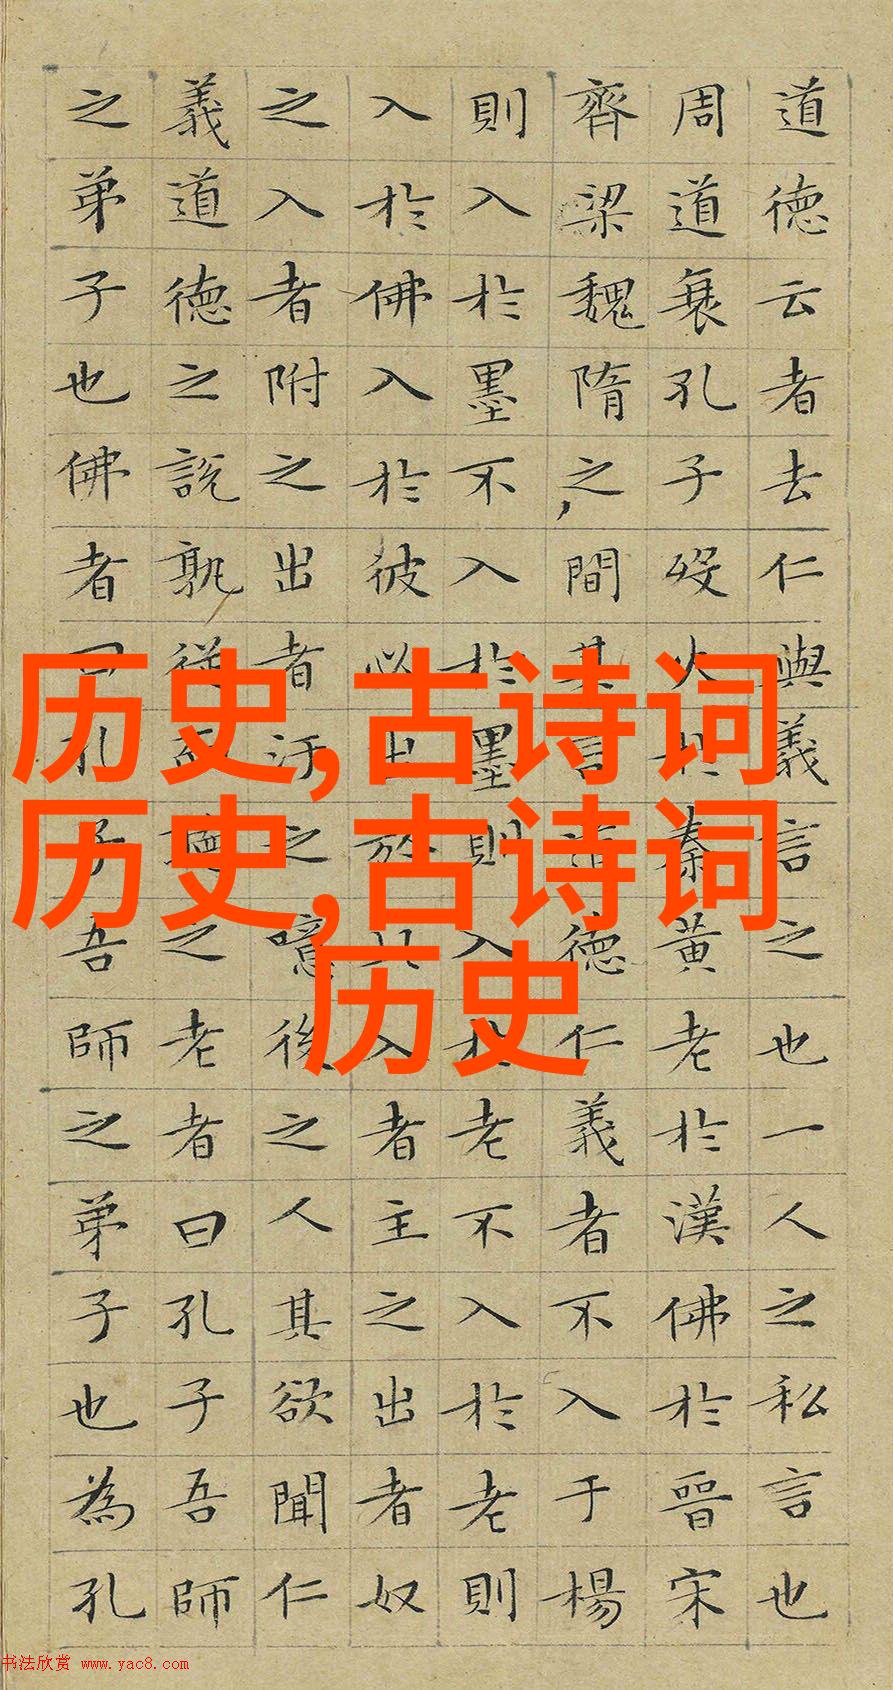 道德云者去仁與義言之也一人之私言也
周道衰孔子歿火於秦黃老於漢佛於晉宋
齊梁魏隋之間其言道德仁義者不入于楊
則入於墨不入於墨則入於老不入於老則
入於佛入於彼必出於此入者主之出者奴
之入者附之出者汙之噫後之人其欲聞仁
義道德之說孰從而聽之老者曰孔子吾師
之弟子也佛者曰孔子吾師之弟子也為孔
历史,古诗词
历史,古诗词
历史
书法欣赏 www.yac8.com